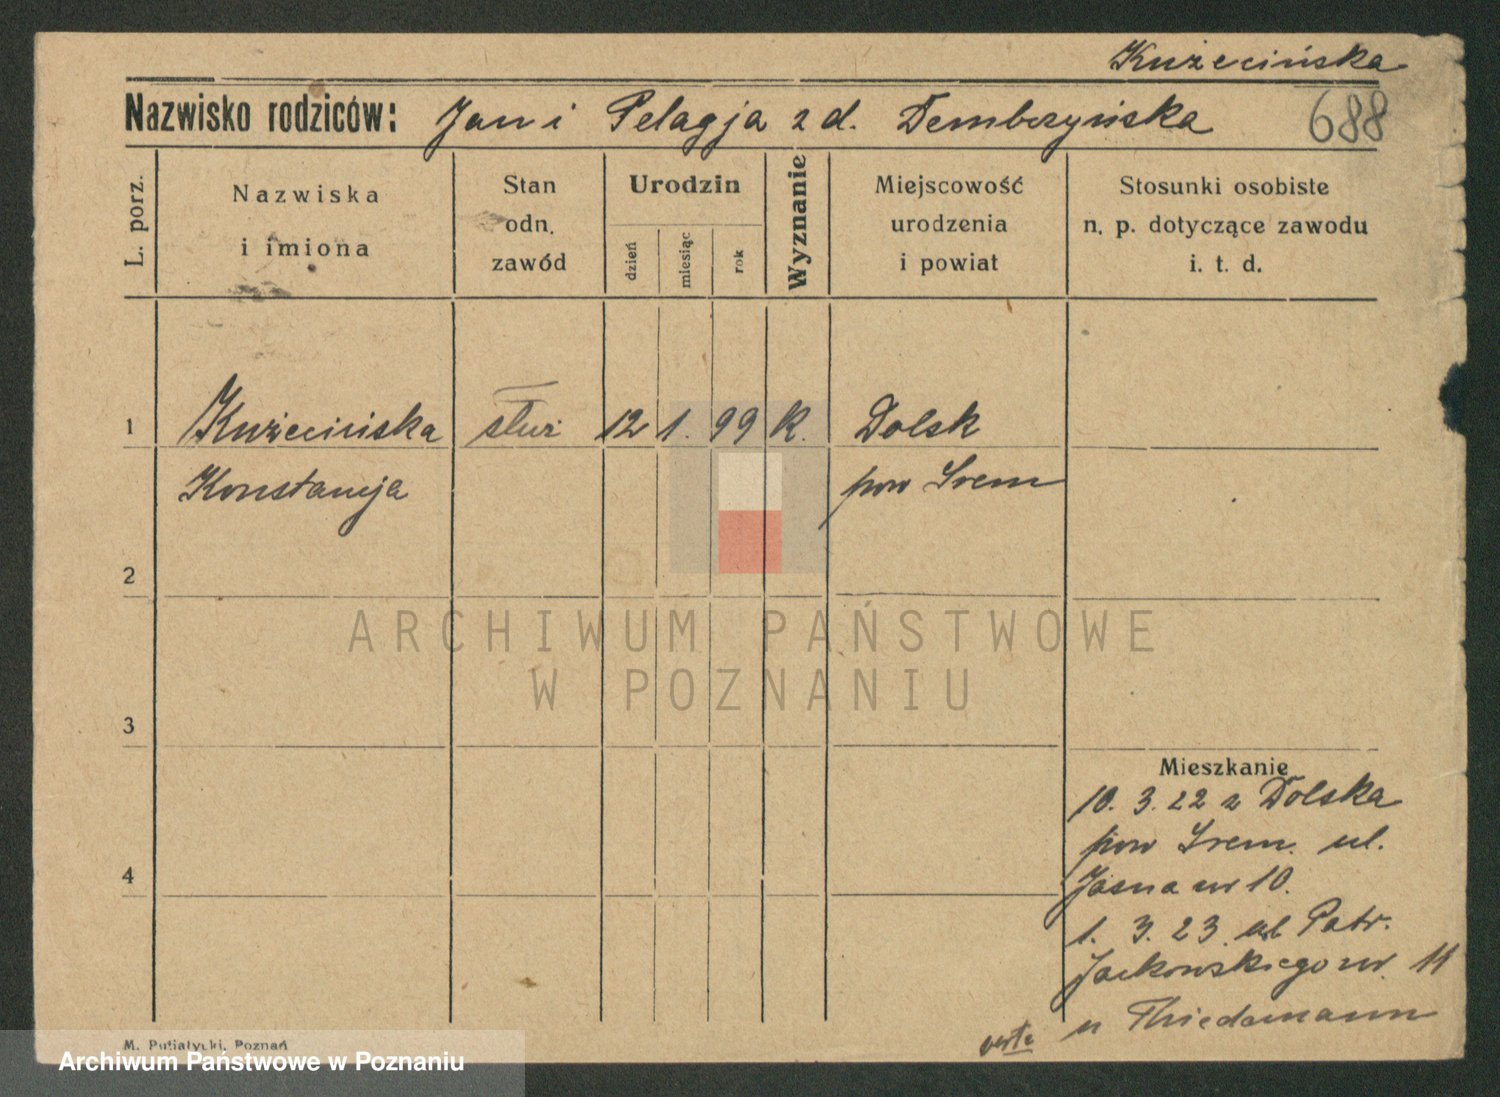 Kużecińska
Nazwisko rodziców: Jan i Pelagja z d. Dembczyńska 688
L. porz.
Nazwiska
i imiona
Stan
odn.
zawód
Urodzin
dzień
miesiąc
rok
Wyznanie
Miejscowość
urodzenia
i powiat
Stosunki osobiste
n. p. dotyczące zawodu
i. t. d.
1 Kużecińska służ 12 1. 99 K. Dolsk
Konstancja pow Śrem
2
3
4
Mieszkanie
10. 3. 22 z Dolska
pow Śrem. ul.
Jasna nr 10.
1. 3. 23 ul Patr.
Jackowskiego nr. 11
u Thiedemann
verte
M. Putiatycki, Poznań
ARCHIWUM PAŃSTWOWE
W POZNANIU
Archiwum Państwowe w Poznaniu